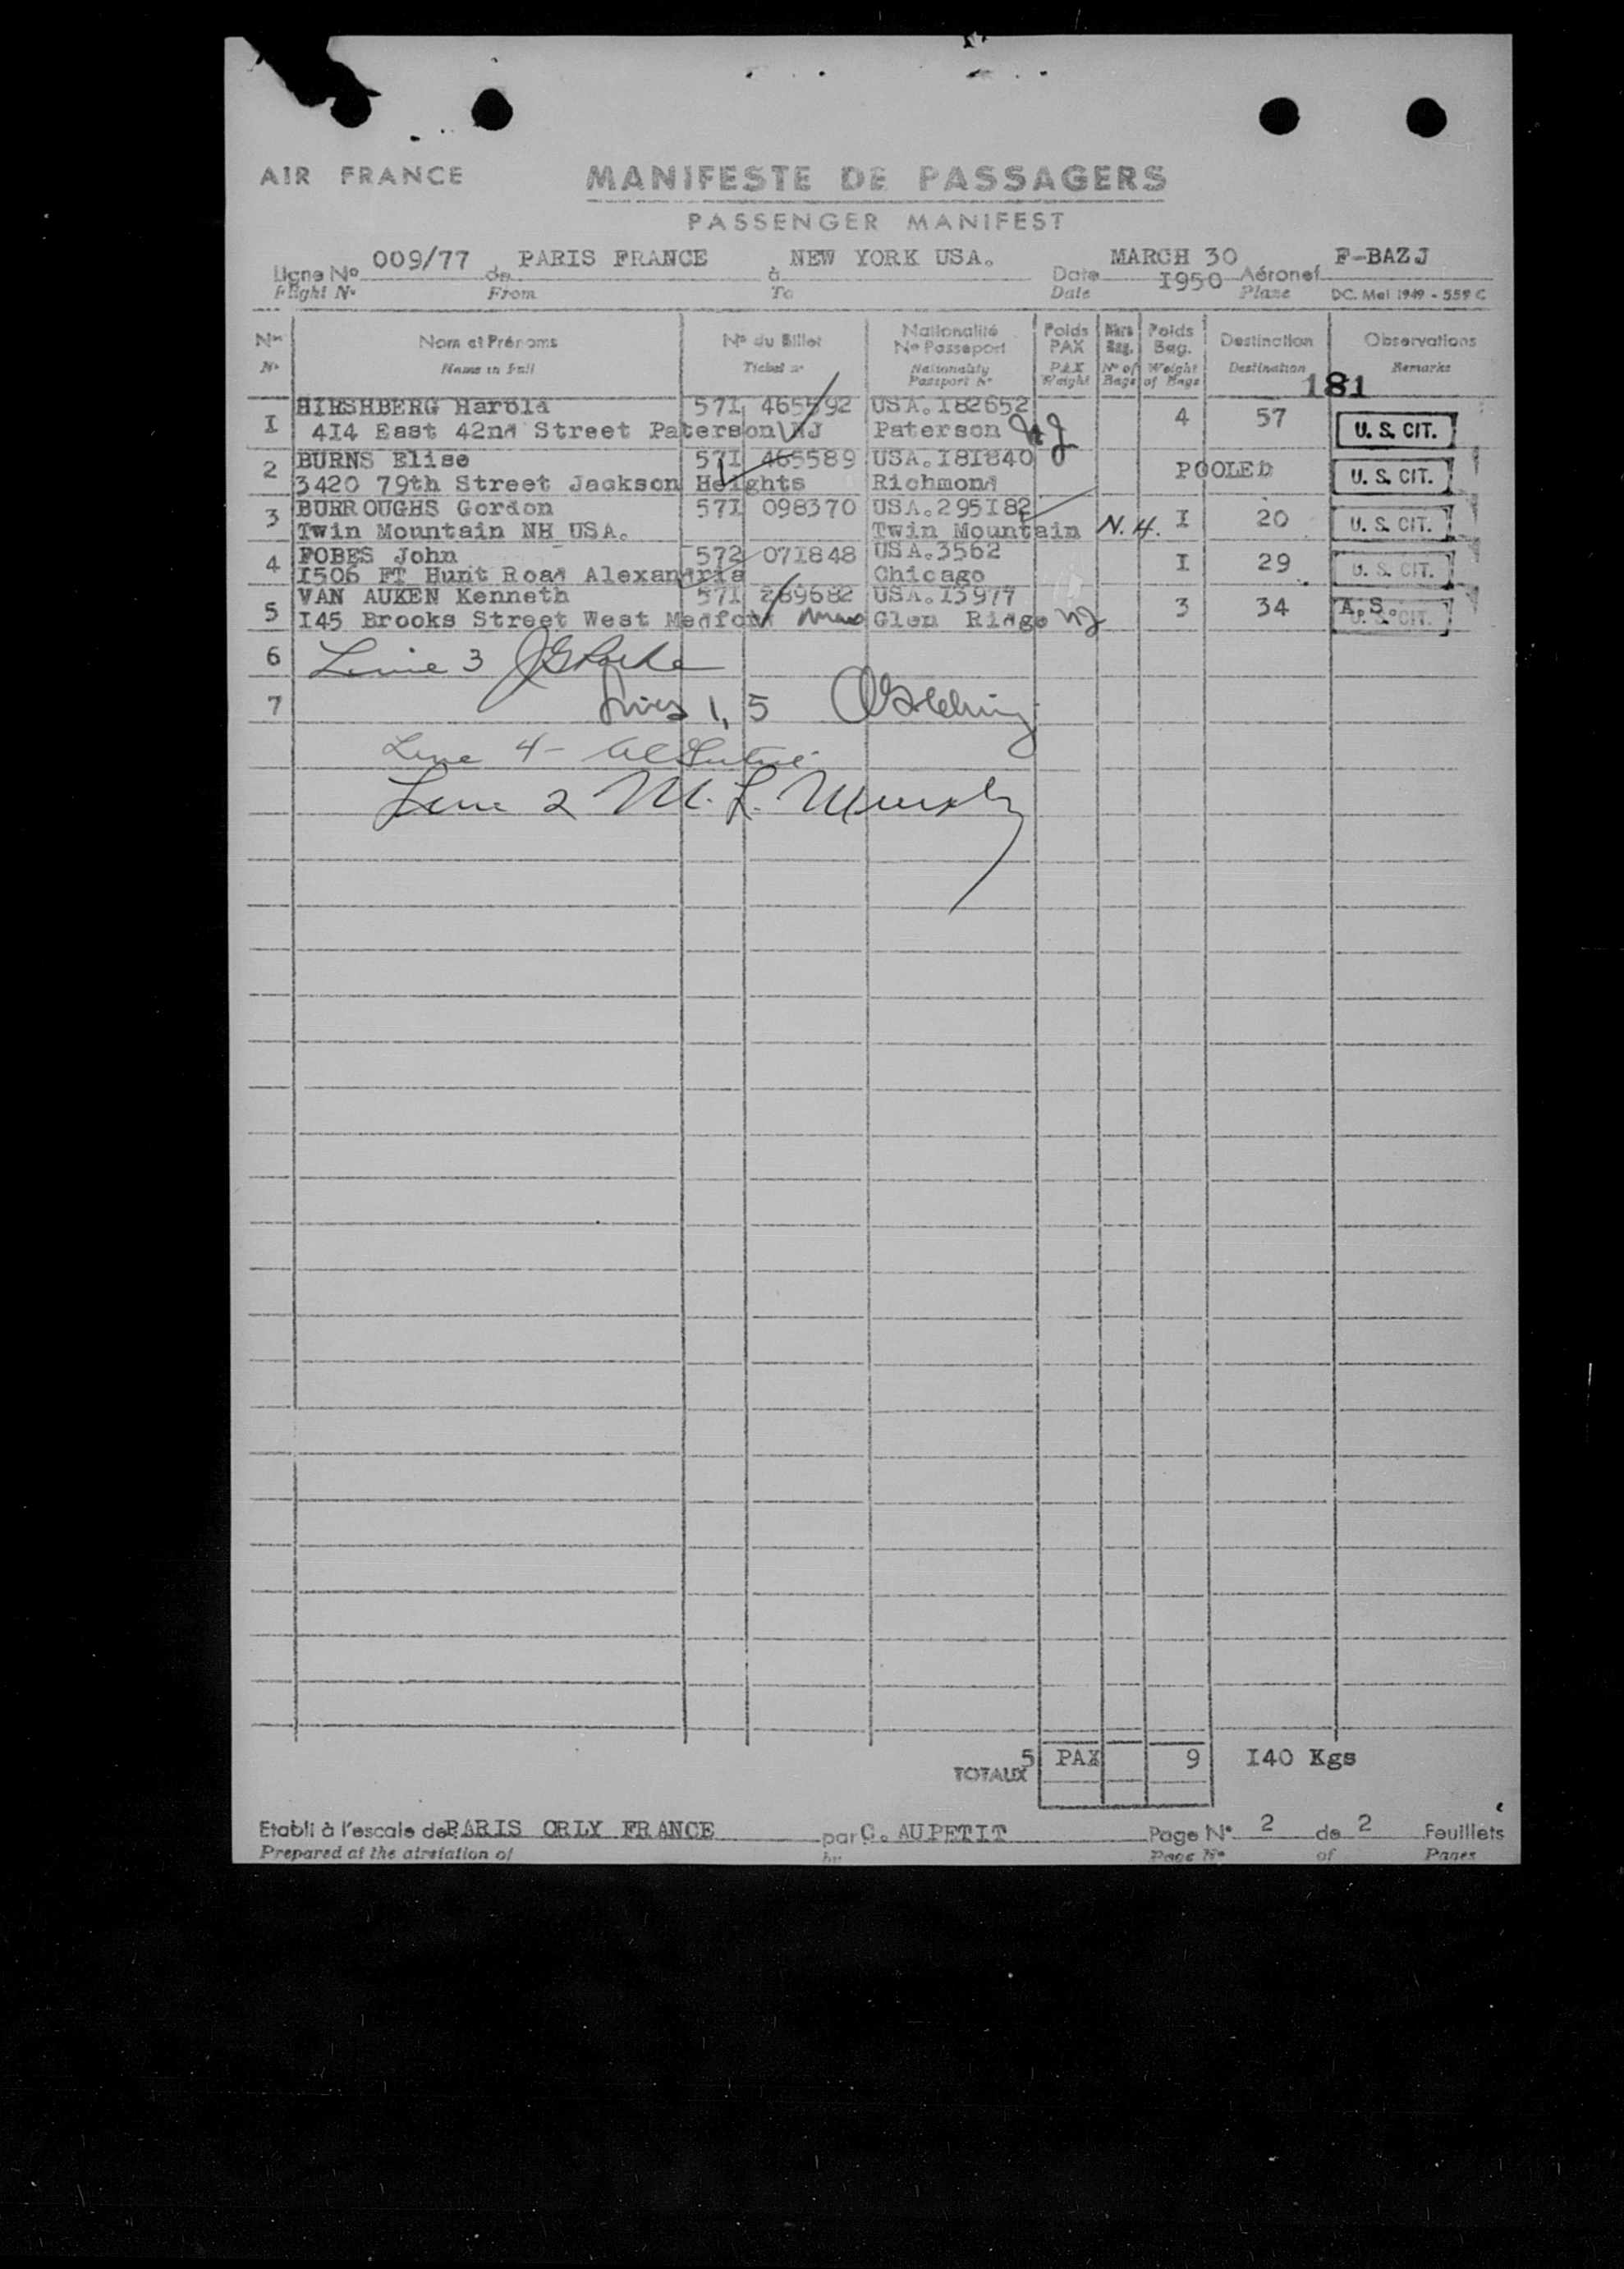 AIR FRANCE MANIFESTE DE PASSAGERS
PASSENGER MANIFEST
Ligne No 009/77 de PARIS FRANCE à NEW YORK USA. Date MARCH 30 I950 Aéronef F-BAZJ
Flight No From To Date Plane DC. Mai 1949 - 559 C
Nos Nom et Prénoms No du Billet Nationalité No Passeport Poids PAX Nbre Bag. Poids Bag. Destination Observations
No Name in full Ticket no Nationality Passport No PAX Weight No of Bags Weight of Bags Destination Remarks
181
I HIRSHBERG Harold 57I 465592 USA.I82652 4 57 U. S. CIT.
4I4 East 42nd Street Paterson NJ Paterson NJ
2 BURNS Elise 57I 465589 USA.I8I840 POOLED U. S. CIT.
3420 79th Street Jackson Heights Richmond
3 BURROUGHS Gordon 57I 098370 USA.295I82 I 20 U. S. CIT.
Twin Mountain NH USA. Twin Mountain N.H.
4 FOBES John 572 07I848 USA.3562 I 29 U. S. CIT.
I506 FT Hunt Road Alexandria Chicago
5 VAN AUKEN Kenneth 57I 289682 USA.I3977 3 34 A.S. U. S. CIT.
I45 Brooks Street West Medford Mass Glen Ridge NJ
6 Line 3
7 Lines 1, 5
Line 4 -
Line 2 M. L. Murphy
TOTAUX 5 PAX 9 I40 Kgs
Etabli à l'escale de PARIS ORLY FRANCE par C. AUPETIT Page No 2 de 2 Feuillets
Prepared at the airstation of by Page No of Pages